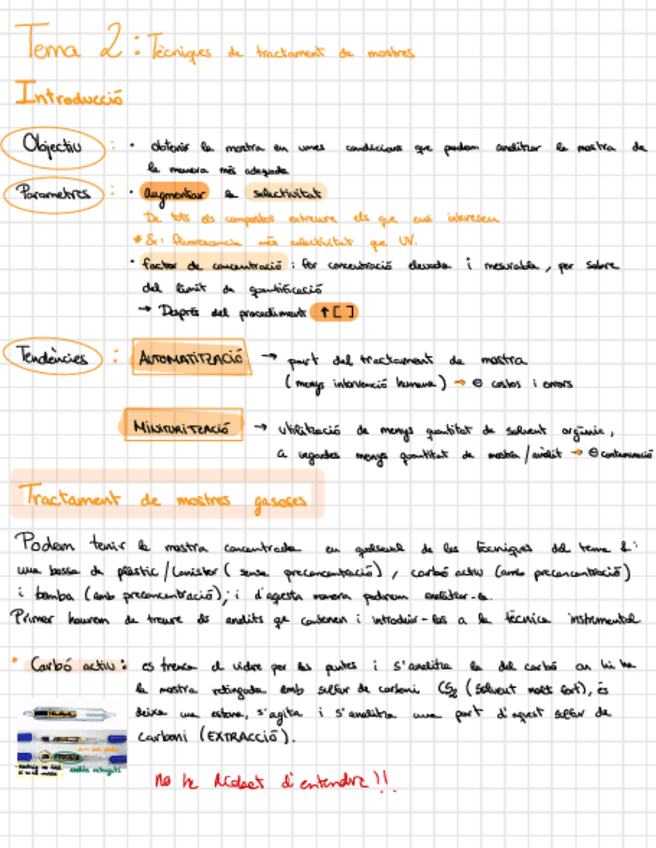 Tema 2: Tècniques de tractament de mostres
Introducció
Objectiu : · obtenir la mostra en unes condicions que podem analitzar la mostra de
la manera més adequada
Parametres : · augmentar la selectivitat
De tots els compostos extreure els que ens interesen
* Ex: fluorescencia més selectivitat que UV.
· factor de concentració : fer concentració elevada i mesurable, per sobre
del límit de quantificació
→ Després del procediment ↑[ ]
Tendències : AUTOMATITZACIÓ → part del tractament de mostra
(menys intervenció humana) → ⊖ costos i errors
MINITURITZACIÓ → utilització de menys quantitat de solvent orgànic,
a vegades menys quantitat de mostra/analit → ⊖ contaminació
Tractament de mostres gasoses
Podem tenir la mostra concentrada en qualsevol de les tècniques del tema 1:
una bossa de plàstic/Canister (sense preconcentració), carbó actiu (amb preconcentració)
i bomba (amb preconcentració); i d'aquesta manera podrem analitzar-la.
Primer haurem de treure els analits que contenen i introduir-los a la tècnica instrumental
· Carbó actiu: es trenca el vidre per les puntes i s'analitza la del carbó on hi ha
la mostra retinguda amb sulfur de carboni CS₂ (solvent molt fort), es
deixa una estona, s'agita i s'analitza una part d'aquest sulfur de
carboni (EXTRACCIÓ).
analits retinguts
No he d'entendre!!